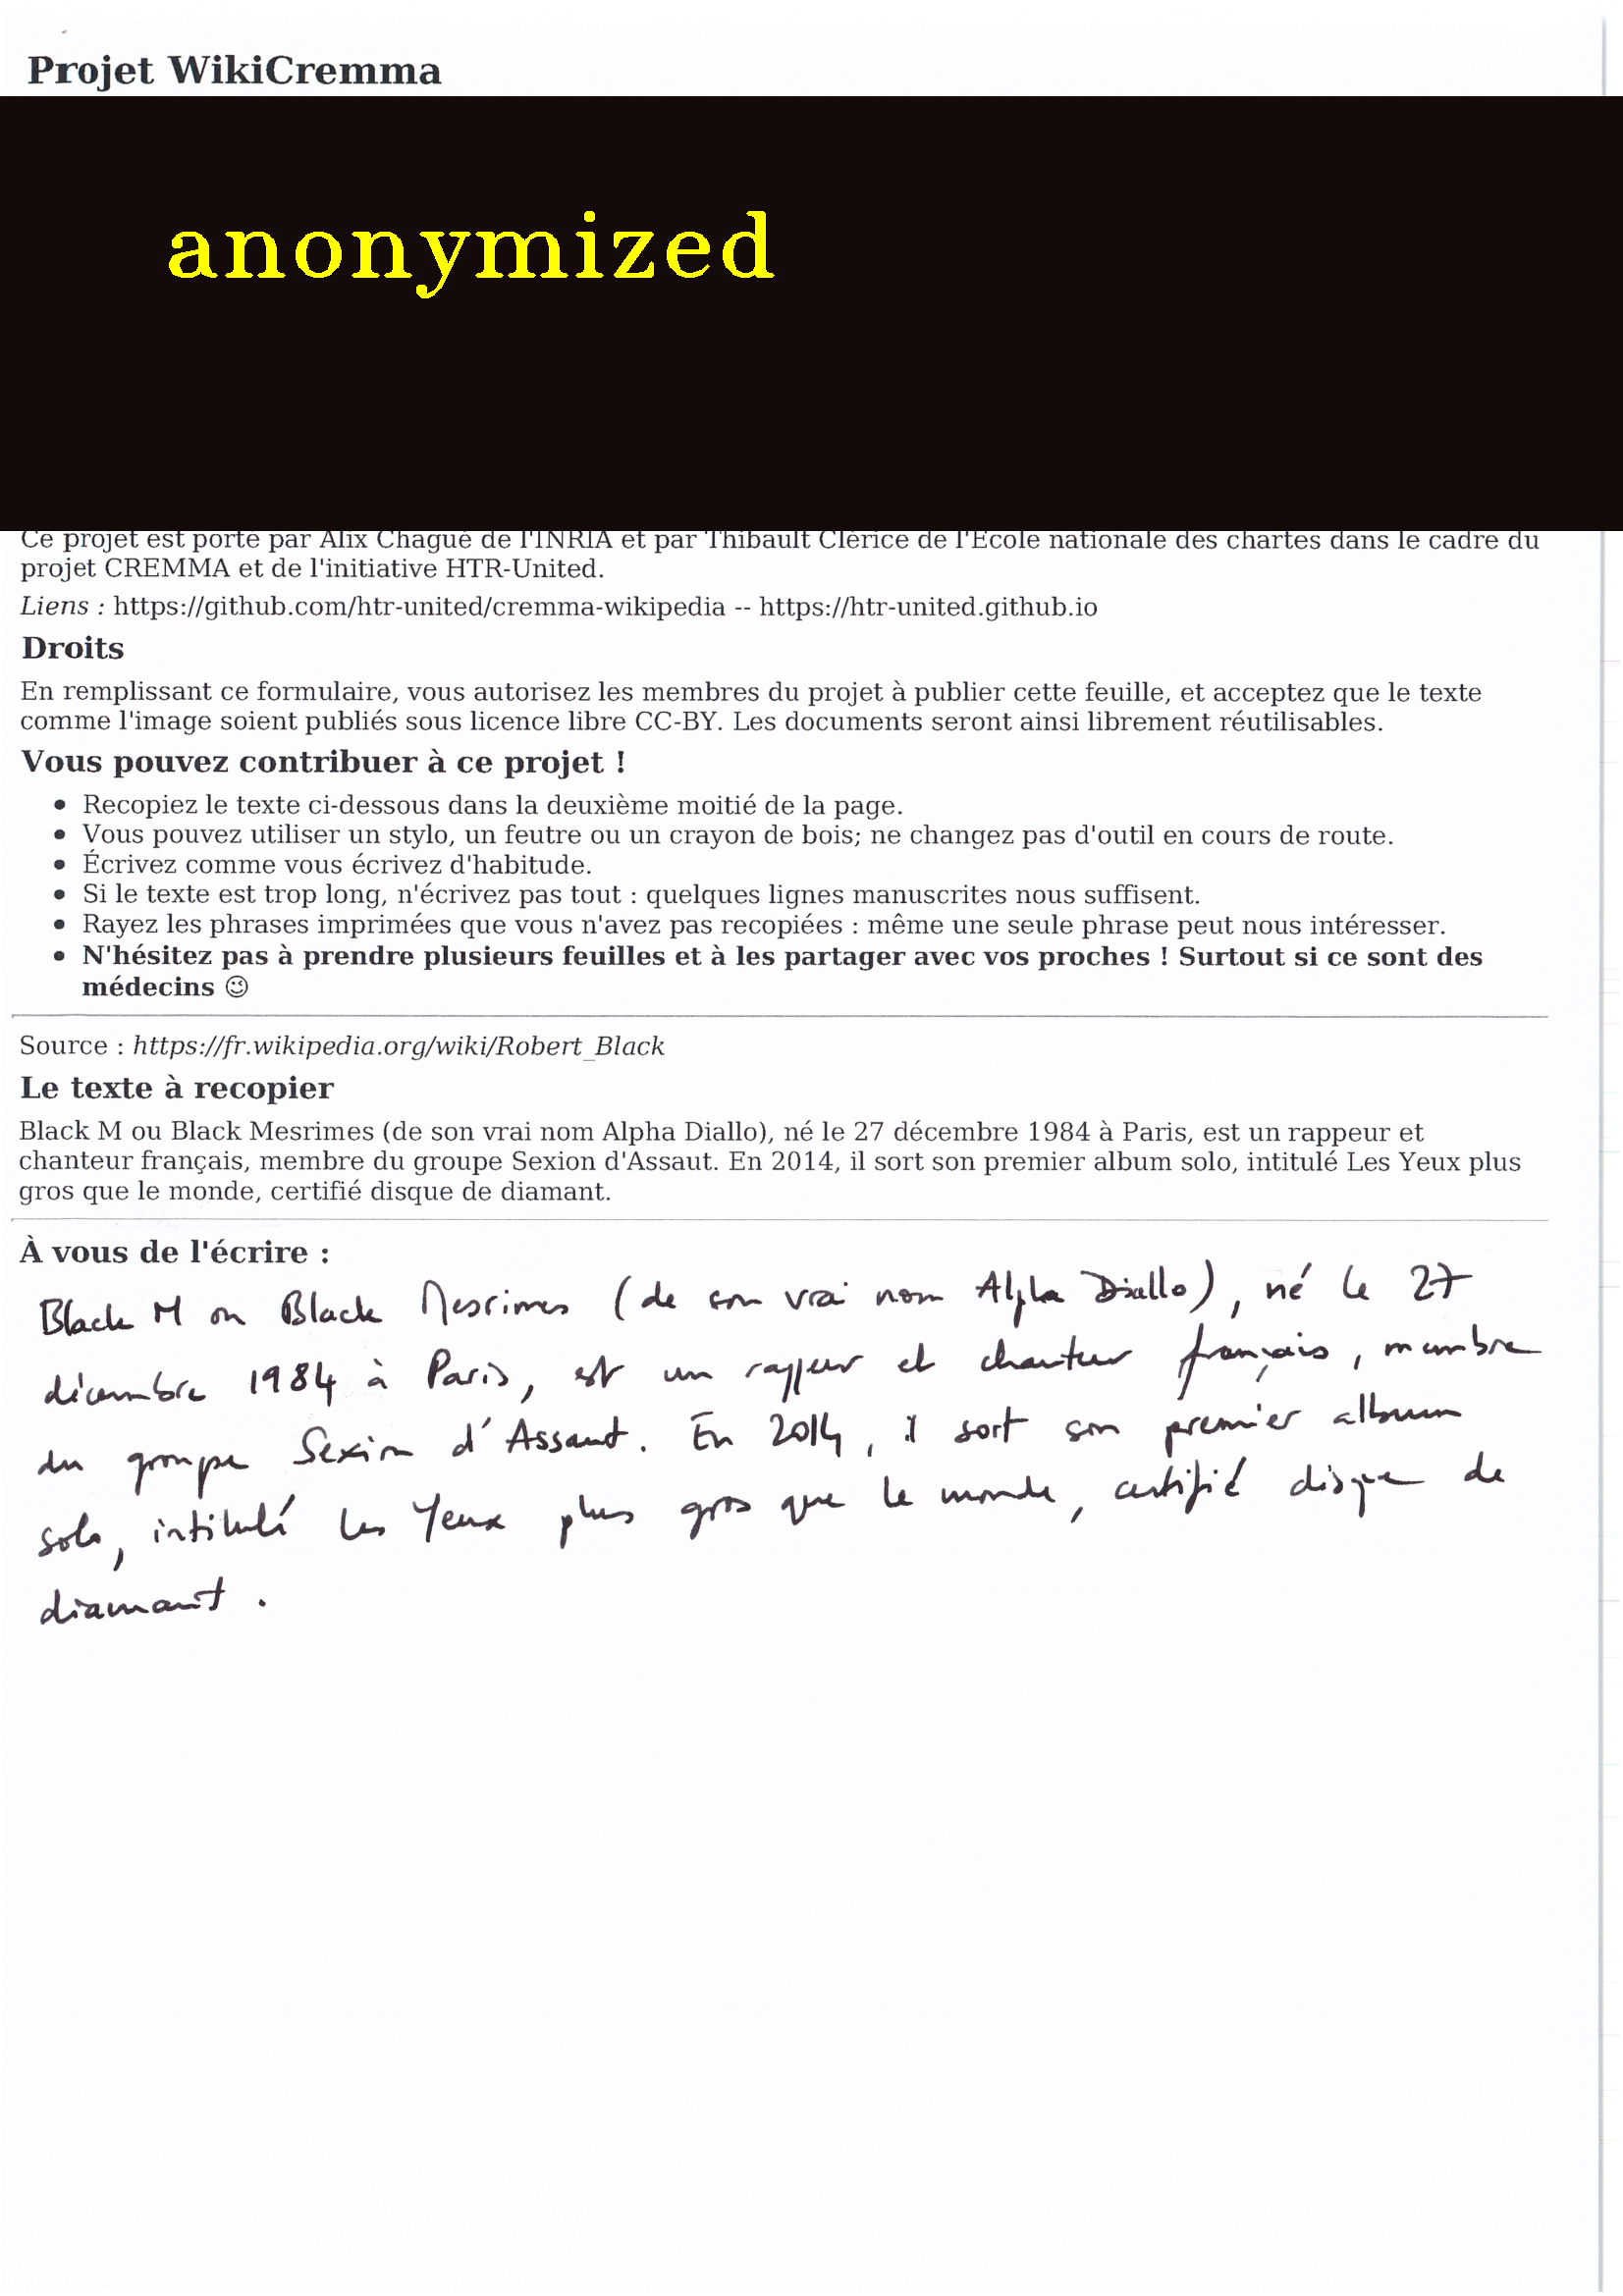 Projet WikiCremma
anonymized
Ce projet est porté par Alix Chagué de l'INRIA et par Thibault Clérice de l'École nationale des chartes dans le cadre du
projet CREMMA et de l'initiative HTR-United.
Liens : https://github.com/htr-united/cremma-wikipedia -- https://htr-united.github.io
Droits
En remplissant ce formulaire, vous autorisez les membres du projet à publier cette feuille, et acceptez que le texte
comme l'image soient publiés sous licence libre CC-BY. Les documents seront ainsi librement réutilisables.
Vous pouvez contribuer à ce projet !
• Recopiez le texte ci-dessous dans la deuxième moitié de la page.
• Vous pouvez utiliser un stylo, un feutre ou un crayon de bois; ne changez pas d'outil en cours de route.
• Écrivez comme vous écrivez d'habitude.
• Si le texte est trop long, n'écrivez pas tout : quelques lignes manuscrites nous suffisent.
• Rayez les phrases imprimées que vous n'avez pas recopiées : même une seule phrase peut nous intéresser.
• N'hésitez pas à prendre plusieurs feuilles et à les partager avec vos proches ! Surtout si ce sont des
médecins 😉
Source : https://fr.wikipedia.org/wiki/Robert_Black
Le texte à recopier
Black M ou Black Mesrimes (de son vrai nom Alpha Diallo), né le 27 décembre 1984 à Paris, est un rappeur et
chanteur français, membre du groupe Sexion d'Assaut. En 2014, il sort son premier album solo, intitulé Les Yeux plus
gros que le monde, certifié disque de diamant.
À vous de l'écrire :
Black M ou Black Mesrimes (de son vrai nom Alpha Diallo), né le 27
décembre 1984 à Paris, est un rappeur et chanteur français, membre
du groupe Sexion d'Assaut. En 2014, il sort son premier album
solo, intitulé Les Yeux plus gros que le monde, certifié disque de
diamant.